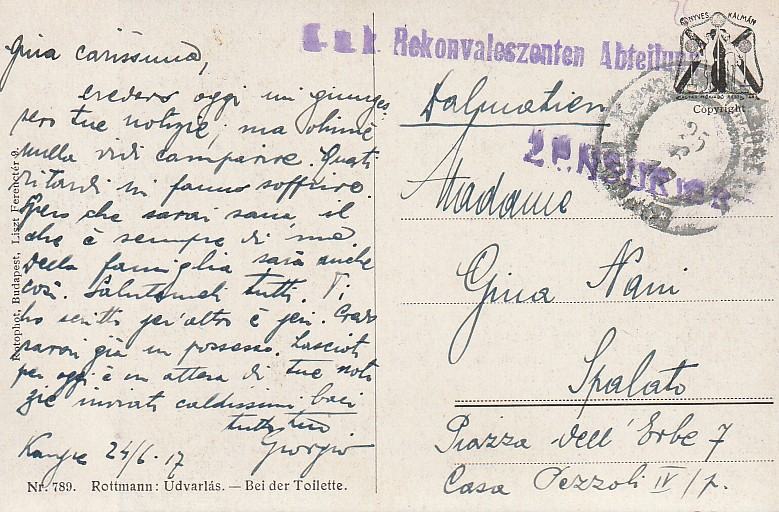 Gina carissima,
credevo oggi mi giunge
sero tue notizie, ma ohimè
nulla vidi comparire. Questi
ritardi mi fanno soffrire.
Spero che sarai sana, il
che è sempre di me.
Della famiglia sarà anche
così. Salutameli tutti. Ti
ho scritto jer'altro e jeri. Credo
sarai già in possesso. Lascioti
per oggi e in attesa di tue noti
zie inviati caldissimi baci
tutto tuo
Giorgio
24/6. 17
Nr. 789. Rottmann: Udvarlás. — Bei der Toilette.
Rotophot, Budapest, Liszt Ferenctér 9.
K. u. k. Rekonvaleszenten Abteilung
KÖNYVES KÁLMÁN
Copyright
Dalmatien
ZENSURIERT
Madame
Gina Nani
Spalato
Piazza dell' Erbe 7
Casa Pezzoli IV/p.